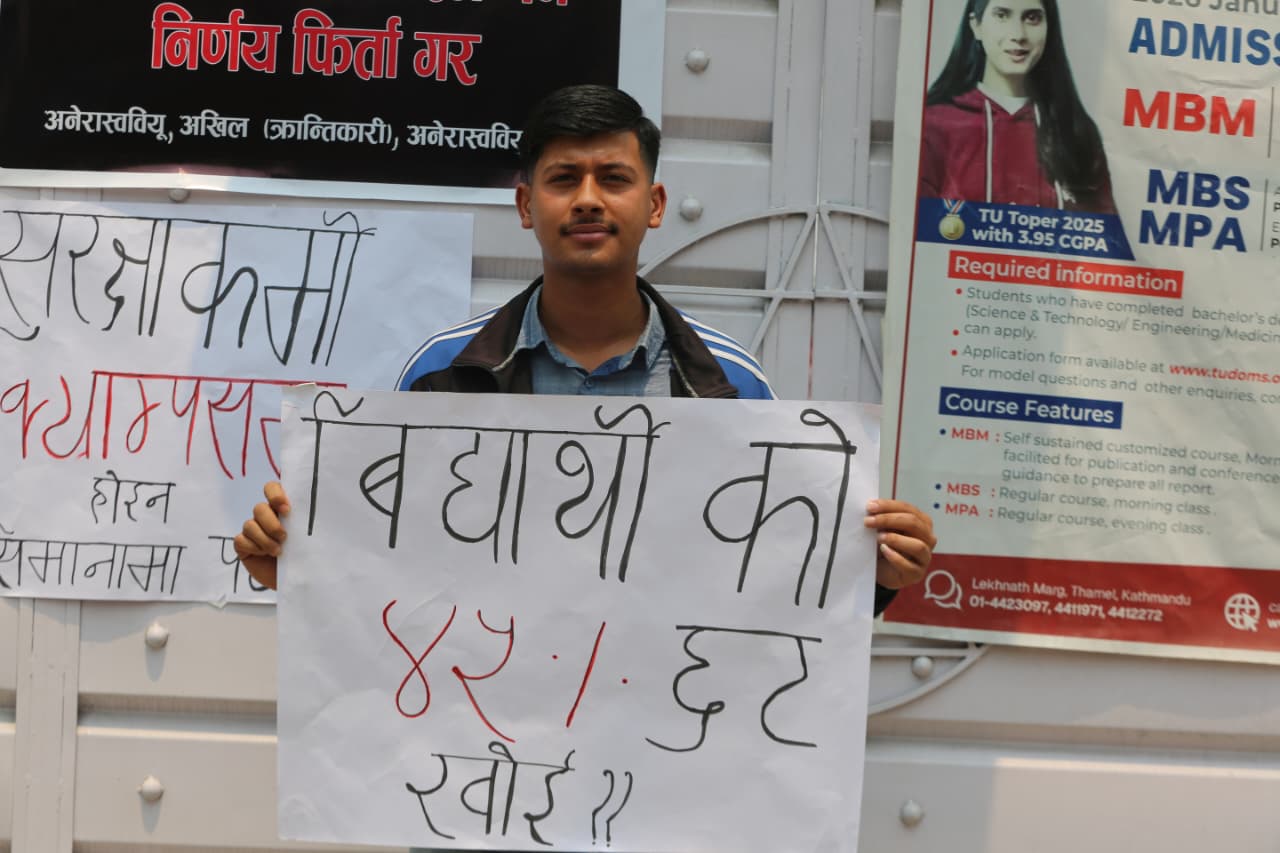 निर्णय फिर्ता गर
अनेरास्ववियू, अखिल (क्रान्तिकारी),
सुरक्षाकर्मी
होइन
विद्यार्थी को
४५ %
छुट
खोई !!
ADMISS
MBM
MBS
MPA
TU Toper 2025
with 3.95 CGPA
Required information
• Students who have completed bachelor's d
(Science & Technology/ Engineering/Medicin
• can apply.
• Application form available at www.tudoms.o
For model questions and other enquiries, co
Course Features
• MBM : Self sustained customized course, Morn
facilited for publication and conference
guidance to prepare all report.
• MBS : Regular course, morning class.
• MPA : Regular course, evening class.
Lekhnath Marg, Thamel, Kathmandu
01-4423097, 4411971, 4412272